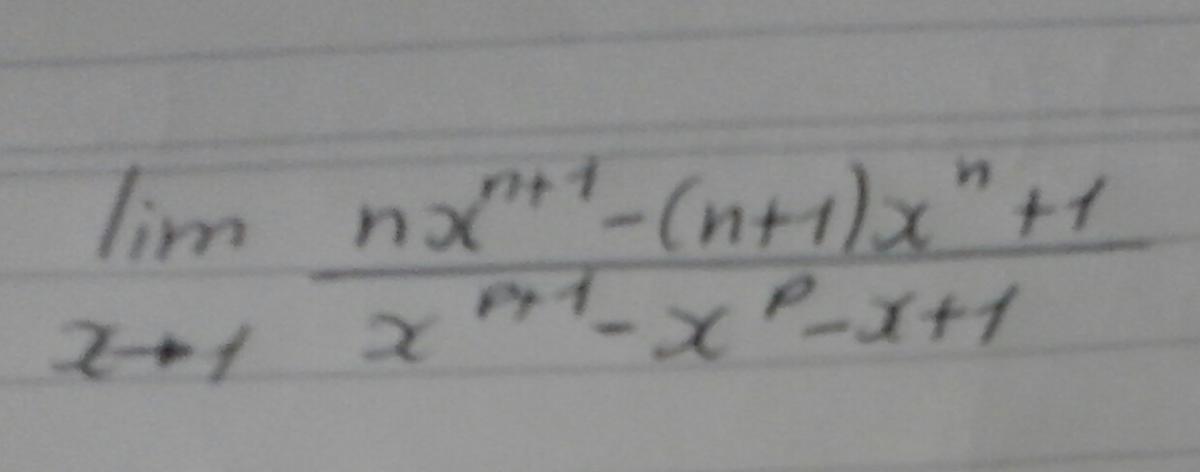 lim nx^{n+1} - (n+1)x^n + 1
x→1 x^{p+1} - x^p - x + 1